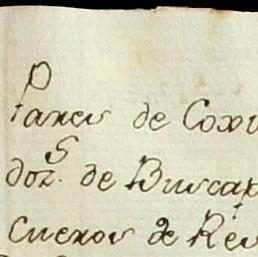 P
Pares de Coxi
S
doz. de Buscap
Cueros de Res